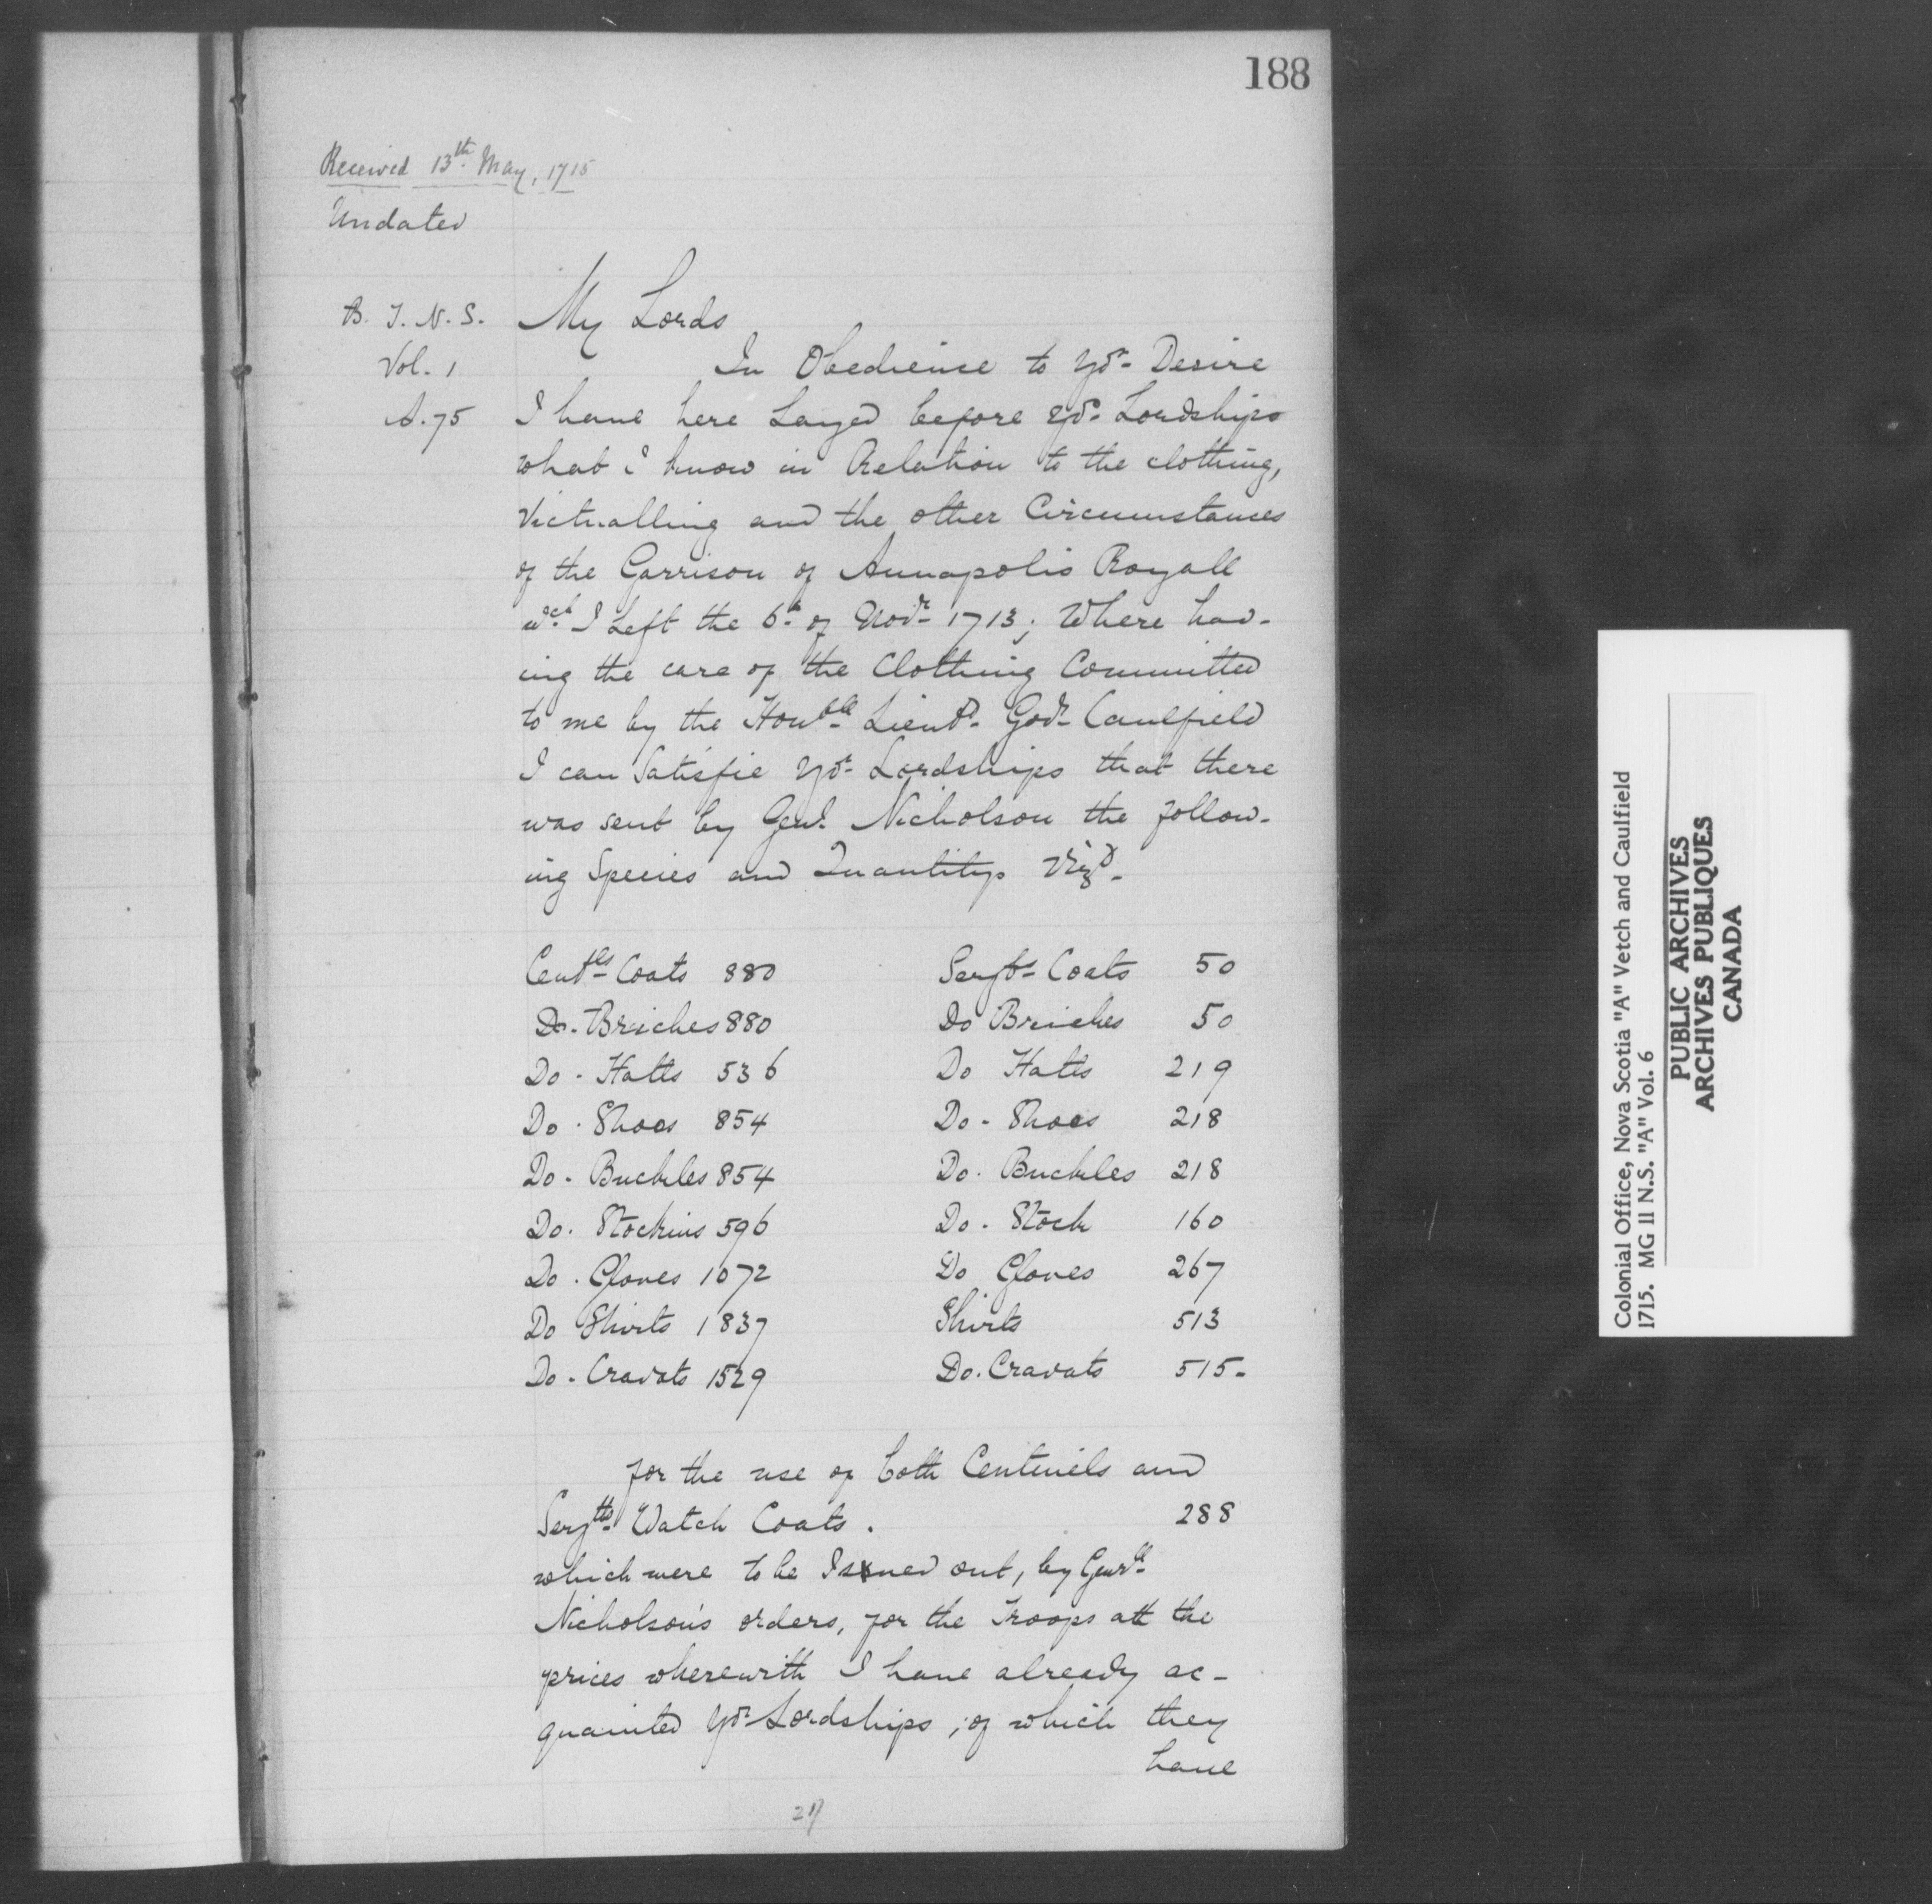 188
Received 13th May, 1715
Undated
B. T. N. S.
Vol. 1
A. 75
My Lords
In Obedience to Yor. Desire
I have here Layed before Yor. Lordships
what I know in Relation to the clothing,
Victualling and the other Circumstances
of the Garrison of Annapolis Royall
wch I Left the 6t. of Novr. 1713; Where hav-
ing the care of the Clothing Committed
to me by the Honble. Lieut. Govr. Caulfield
I can Satisfie Yor. Lordships that there
was sent by Genl. Nicholson the follow-
ing Species and Quantitys Vizt.
Centls. Coats 880 Serjts. Coats 50
Do. Briches 880 Do Briches 50
Do. Hatts 536 Do Hatts 219
Do. Shoes 854 Do. Shoes 218
Do. Buckles 854 Do. Buckles 218
Do. Stockins 596 Do. Stock 160
Do. Gloves 1072 Do Gloves 267
Do Shirts 1837 Shirts 513
Do. Cravats 1529 Do. Cravats 515.
for the use of both Centinels and
Serjtts. Watch Coats. 288
which were to be Issued out, by Genrll.
Nicholson's orders, for the Troops att the
prices wherewith I have already ac-
quainted Yor. Lordships; of which they
have
Colonial Office, Nova Scotia "A" Vetch and Caulfield
1715. MG 11 N.S. "A" Vol. 6
PUBLIC ARCHIVES
ARCHIVES PUBLIQUES
CANADA